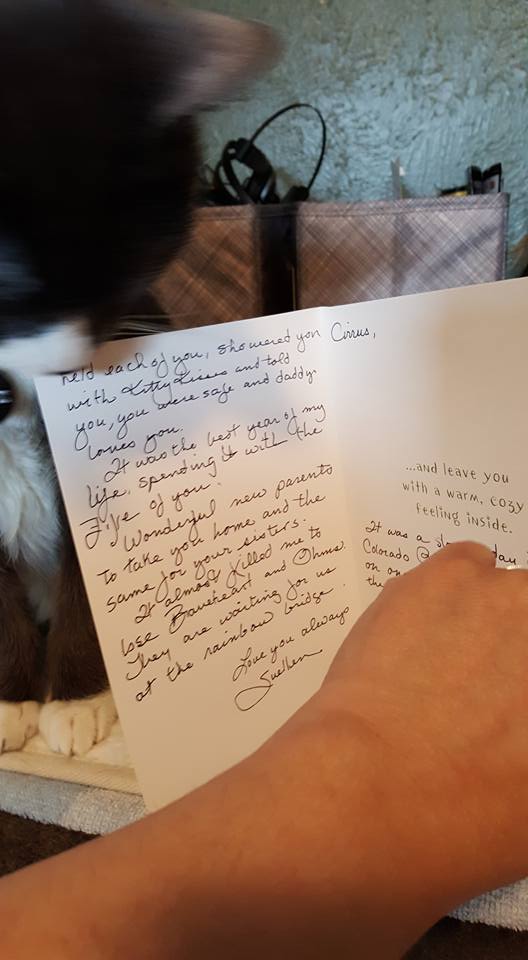 held each of you, showered you
with Kitty Kisses and told
you, you were safe and daddy
loves you.
It was the best year of my
life, spending it with the
Five of you.
Wonderful new parents
to take you home and the
same for your sisters.
It almost killed me to
lose Braveheart and Ohms.
They are waiting for us
at the rainbow bridge.
Love you always
Suellen
Cirrus,
...and leave you
with a warm, cozy
feeling inside.
It was a day
Colorado
on
the